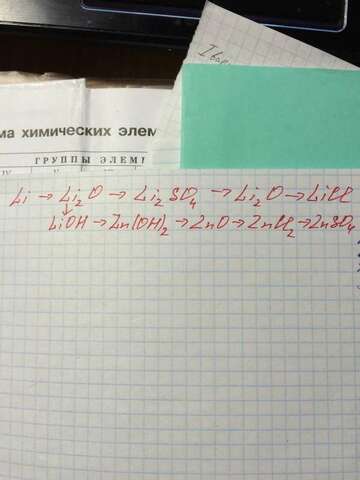 I вар
ма химических элем
ГРУППЫ ЭЛЕМ
V
Li → Li₂O → Li₂SO₄ → Li₂O → LiCl
↓
LiOH → Zn(OH)₂ → ZnO → ZnCl₂ → ZnSO₄